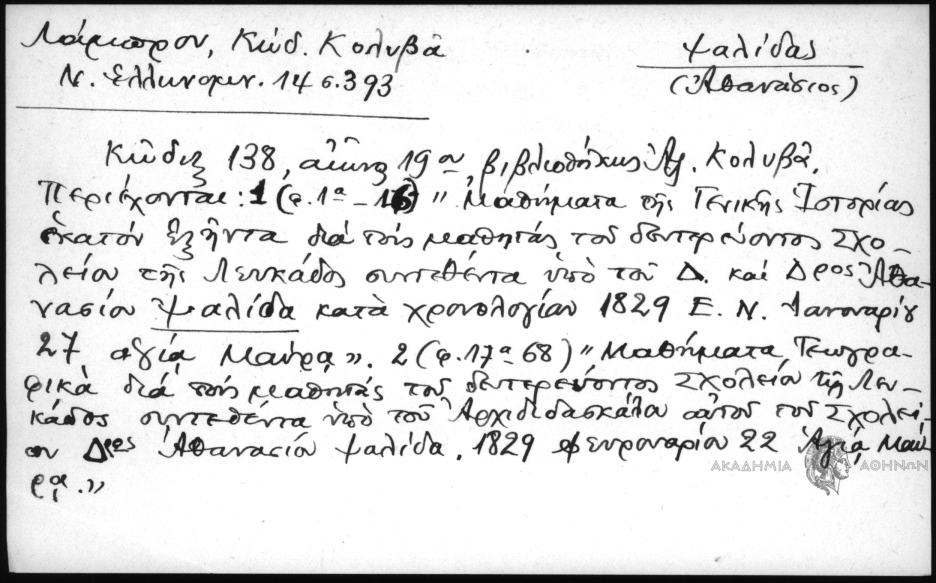 Λάμπρου, Κώδ. Κολυβᾶ
Ν. Ἑλληνομν. 14 σ. 393
Ψαλίδας
(Ἀθανάσιος)
Κῶδιξ 138, αἰῶνος 19ου, βιβλιοθήκης Ἀλ. Κολυβᾶ.
Περιέχονται: 1 (φ. 1α – 16) "Μαθήματα τῆς Γενικῆς Ἱστορίας
ἑκατὸν ἑξῆντα διὰ τοὺς μαθητάς τοῦ δευτερεύοντος Σχο-
λείου τῆς Λευκάδος συντεθέντα ὑπὸ τοῦ Δ. καὶ Δρος Ἀθα-
νασίου Ψαλίδα κατὰ χρονολογίαν 1829 Ε. Ν. Ἰανουαρίου
27 ἁγία Μαύρα". 2 (φ. 17α 68) "Μαθήματα Γεωγρα-
φικὰ διά τοὺς μαθητάς τοῦ δευτερεύοντος Σχολείου τῆς Λευ-
κάδος συντεθέντα ὑπὸ τοῦ Ἀρχιδιδασκάλου αὐτοῦ τοῦ Σχολεί-
ου Δρος Ἀθανασίου Ψαλίδα. 1829 Φευρουαρίου 22 Ἁγίᾳ Μαύ-
ρᾳ."
ΑΚΑΔΗΜΙΑ ΑΘΗΝΩΝ